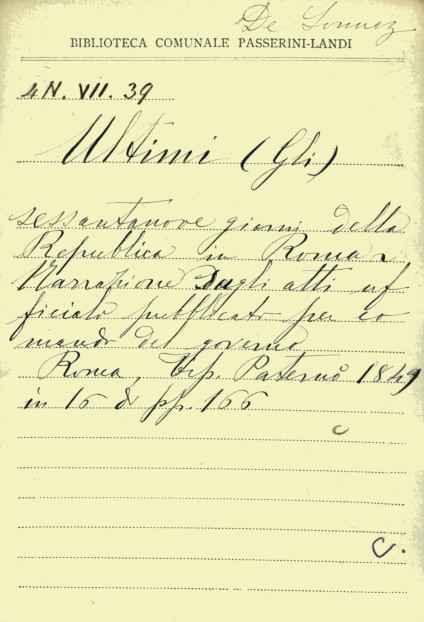 De
BIBLIOTECA COMUNALE PASSERINI-LANDI
4 N. VII. 39
Ultimi (Gli)
sessantanove giorni della
Republica in Roma
Narrazione Dagli atti uf
ficiali pubblicato per co
mando del governo
Roma, Tip. Paternò 1849
in 16 di pp. 166
C.